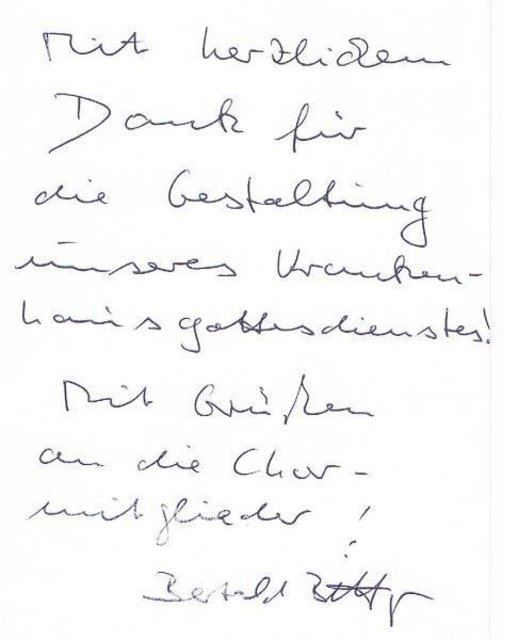 Mit herzlichem
Dank für
die Gestaltung
unseres Kranken-
hausgottesdienstes!
Mit Grüßen
an die Chor-
mitglieder!
Bertold